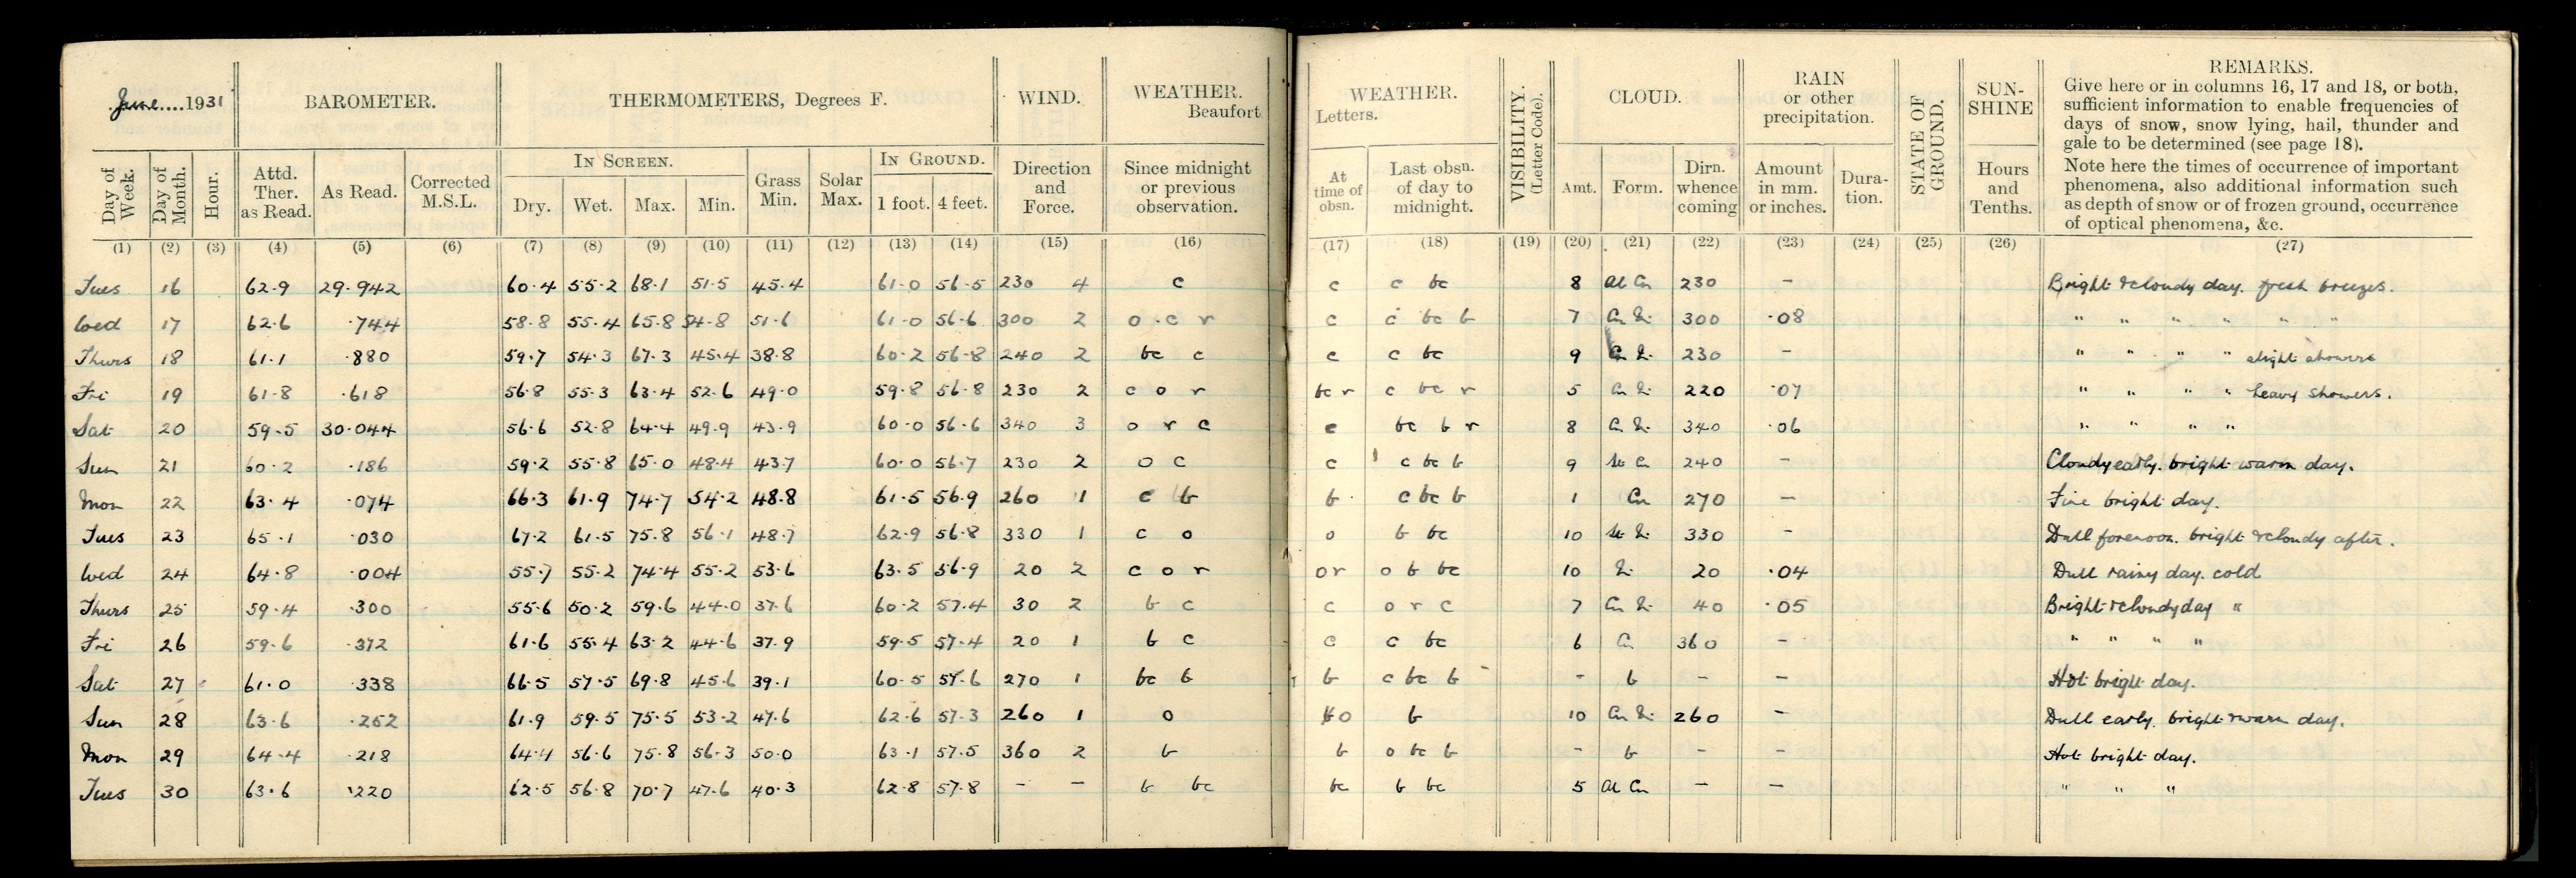 June....1931 BAROMETER. THERMOMETERS, Degrees F. WIND. WEATHER.
Beaufort
Day of Week. Day of Month. Hour. Attd. Ther. as Read. As Read. Corrected M.S.L. IN SCREEN. Dry. Wet. Max. Min. Grass Min. Solar Max. IN GROUND. 1 foot. 4 feet. Direction and Force. Since midnight or previous observation.
(1) (2) (3) (4) (5) (6) (7) (8) (9) (10) (11) (12) (13) (14) (15) (16)
Tues 16 62.9 29.942 60.4 55.2 68.1 51.5 45.4 61.0 56.5 230 4 c
Wed 17 62.6 .744 58.8 55.4 65.8 54.8 51.6 61.0 56.6 300 2 o c r
Thurs 18 61.1 .880 59.7 54.3 67.3 45.4 38.8 60.2 56.8 240 2 bc c
Fri 19 61.8 .618 56.8 55.3 63.4 52.6 49.0 59.8 56.8 230 2 c o r
Sat 20 59.5 30.044 56.6 52.8 64.4 49.9 43.9 60.0 56.6 340 3 o r c
Sun 21 60.2 .186 59.2 55.8 65.0 48.4 43.7 60.0 56.7 230 2 o c
Mon 22 63.4 .074 66.3 61.9 74.7 54.2 48.8 61.5 56.9 260 1 c b
Tues 23 65.1 .030 67.2 61.5 75.8 56.1 48.7 62.9 56.8 330 1 c o
Wed 24 64.8 .004 55.7 55.2 74.4 55.2 53.6 63.5 56.9 20 2 c o r
Thurs 25 59.4 .300 55.6 50.2 59.6 44.0 37.6 60.2 57.4 30 2 b c
Fri 26 59.6 .372 61.6 55.4 63.2 44.6 37.9 59.5 57.4 20 1 b c
Sat 27 61.0 .338 66.5 57.5 69.8 45.6 39.1 60.5 57.6 270 1 bc b
Sun 28 63.6 .262 61.9 59.5 75.5 53.2 47.6 62.6 57.3 260 1 o
Mon 29 64.4 .218 64.4 56.6 75.8 56.3 50.0 63.1 57.5 360 2 b
Tues 30 63.6 .220 62.5 56.8 70.7 47.6 40.3 62.8 57.8 - - b bc
WEATHER. VISIBILITY. (Letter Code). CLOUD. RAIN or other precipitation. STATE OF GROUND. SUN-SHINE REMARKS.
Letters.
Give here or in columns 16, 17 and 18, or both,
sufficient information to enable frequencies of
days of snow, snow lying, hail, thunder and
gale to be determined (see page 18).
Note here the times of occurrence of important
phenomena, also additional information such
as depth of snow or of frozen ground, occurrence
of optical phenomena, &c.
At time of obsn. Last obsn. of day to midnight. Amt. Form. Dirn. whence coming Amount in mm. or inches. Dura-tion. Hours and Tenths.
(17) (18) (19) (20) (21) (22) (23) (24) (25) (26) (27)
c c bc 8 Al Cu 230 - Bright & cloudy day. fresh breezes.
c c bc b 7 Cu Ni 300 .08 " " " " " "
c c bc 9 Cu Ni 230 - " " " " slight showers
bc r c bc r 5 Cu Ni 220 .07 " " " " heavy showers.
c bc b r 8 Cu Ni 340 .06 " " " "
c c bc b 9 St Cu 240 - Cloudy early. bright warm day.
b c bc b 1 Cu 270 - Fine bright day.
o b bc 10 St Ni 330 - Dull forenoon. bright & cloudy after.
o r o b bc 10 Ni 20 .04 Dull rainy day. cold
c o r c 7 Cu Ni 40 .05 Bright & cloudy day "
c c bc 6 Cu 360 - " " " "
b c bc b - b - - Hot bright day.
o b 10 Cu Ni 260 - Dull early. bright & warm day.
b o bc b - b - - Hot bright day.
bc b bc 5 Al Cu - - " " "